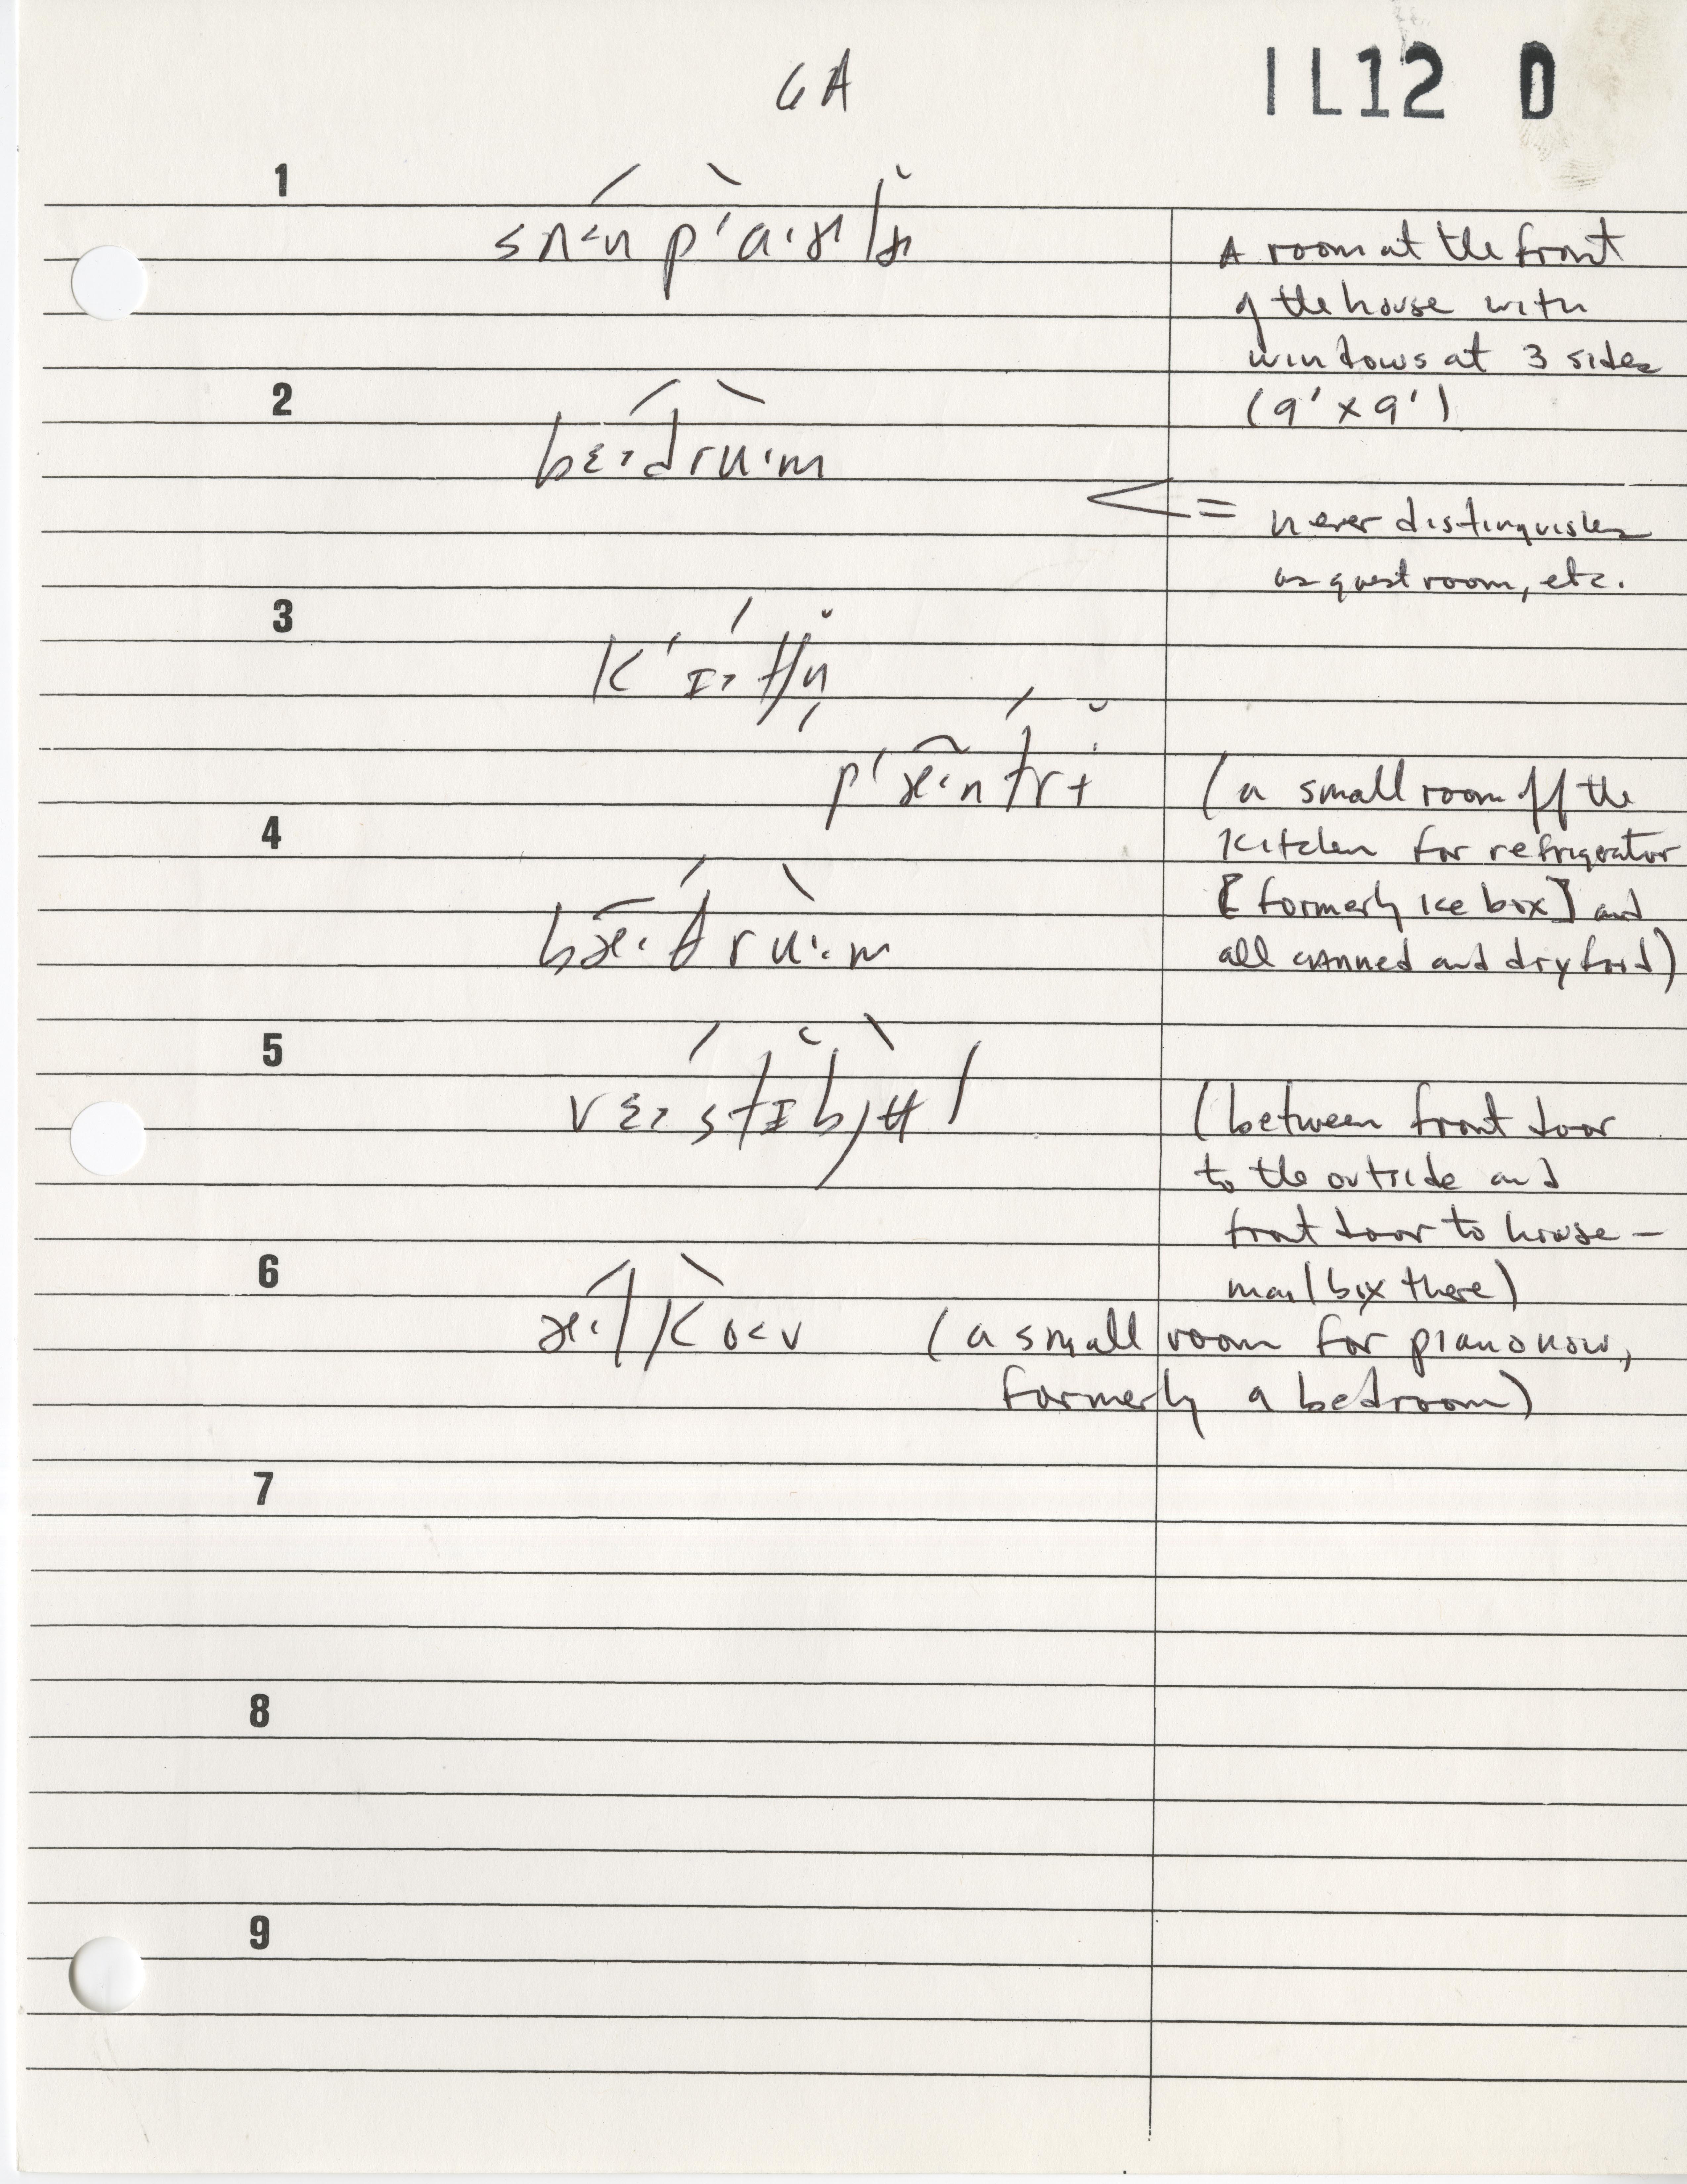 6A
IL12 D
1
sʌ˂n p'a·ɚlɚ
A room at the front
of the house with
windows at 3 sides
(9' x 9')
2
bɛ˃dru·m
<= never distinguishes
as guest room, etc.
3
k'ɪ˃tʃn̩
p'æ̃·ntrɨ
(a small room off the
kitchen for refrigerator
[formerly ice box] and
all canned and dry food)
4
bæ·θru·m
5
vɛ˃stɪbjʉl
(between front door
to the outside and
front door to house –
mailbox there)
6
æ·lko˂v (a small room for piano now,
formerly a bedroom)
7
8
9